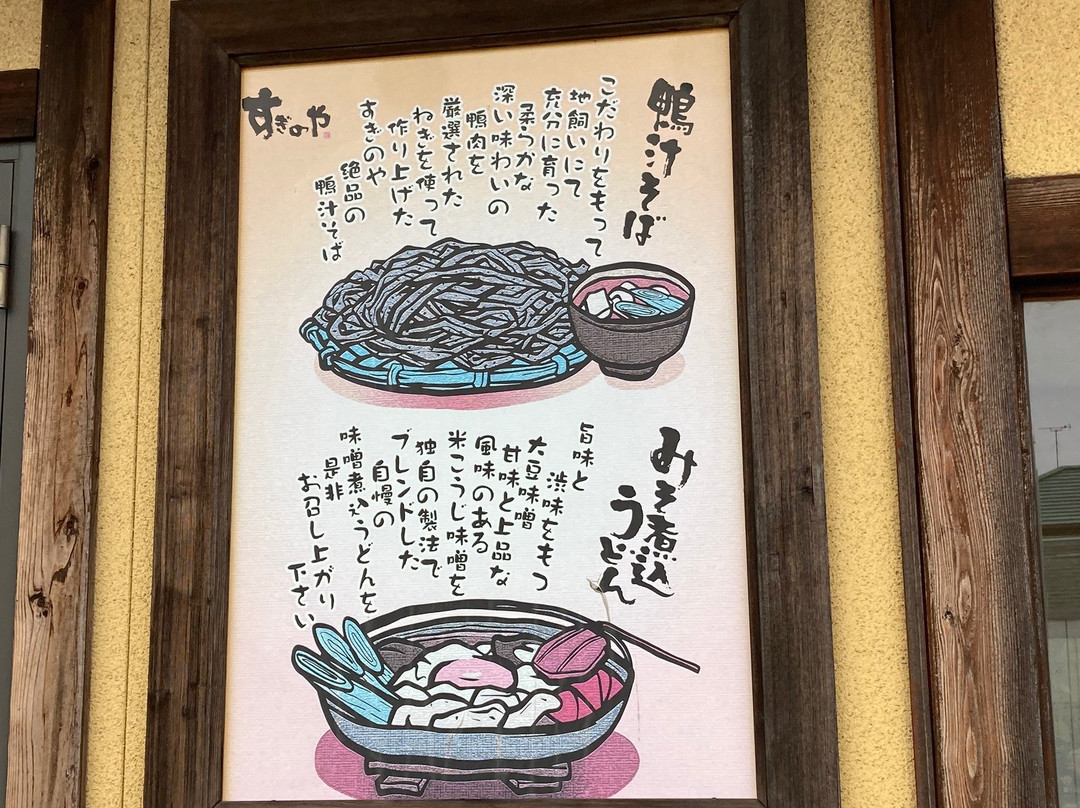 鴨汁そば
こだわりをもって
地飼いにて
充分に育った
柔らかな
深い味わいの
鴨肉を
厳選された
ねぎを使って
作り上げた
すきのや
絶品の
鴨汁そば
すぎのや
みそ煮込
うどん
旨味と
渋味をもつ
大豆味噌
甘味と上品な
風味のある
米こうじ味噌を
独自の製法で
ブレンドした
自慢の
味噌煮込うどんを
是非
お召し上がり
下さい